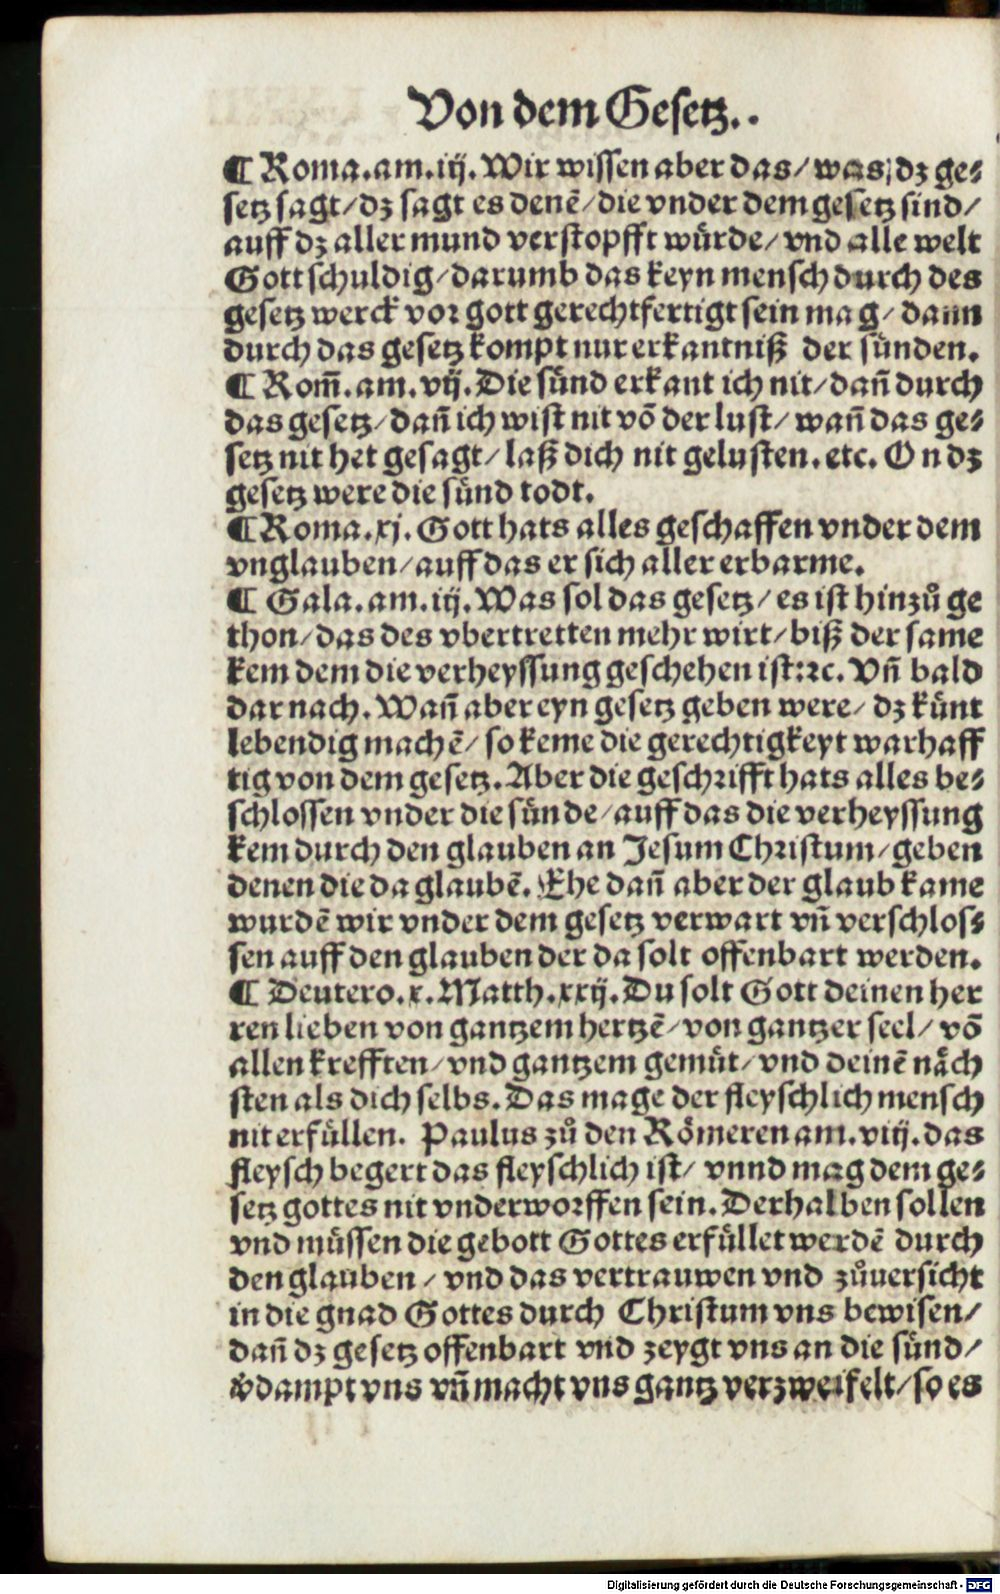 Von dem Gesetz..
¶ Roma.am.iij. Wir wissen aber das/ was/ dz ge⸗
setz sagt/ dz sagt es denẽ/ die vnder dem gesetz sind/
auff dz aller mund verstopfft würde/ vnd alle welt
Gott schuldig/ darumb das keyn mensch durch des
gesetz werck vor gott gerechtfertigt sein mag/ dann
durch das gesetz kompt nur erkantniß der sünden.
¶ Rom̃.am.vij. Die sünd erkant ich nit/ dañ durch
das gesetz/ dañ ich wist nit võ der lust/ wañ das ge⸗
setz nit het gesagt/ laß dich nit gelusten. etc. On dz
gesetz were die sünd todt.
¶ Roma.xj. Gott hats alles geschaffen vnder dem
vnglauben/ auff das er sich aller erbarme.
¶ Gala.am.iij. Was sol das gesetz/ es ist hinzů ge
thon/ das des vbertretten mehr wirt/ biß der same
kem dem die verheyssung geschehen ist: ⁊c. Vñ bald
dar nach. Wañ aber eyn gesetz geben were/ dz künt
lebendig machẽ/ so keme die gerechtigkeyt warhaff
tig von dem gesetz. Aber die geschrifft hats alles be⸗
schlossen vnder die sünde/ auff das die verheyssung
kem durch den glauben an Jesum Christum/ geben
denen die da glaubẽ. Ehe dañ aber der glaub kame
wurdẽ wir vnder dem gesetz verwart vñ verschlos⸗
sen auff den glauben der da solt offenbart werden.
¶ Deutero.x. Matth.xxij. Du solt Gott deinen her
ren lieben von gantzem hertzẽ/ von gantzer seel/ võ
allen krefften/ vnd gantzem gemüt/ vnd deinẽ nå̈ch
sten als dich selbs. Das mage der fleyschlich mensch
nit erfüllen. Paulus zů den Römeren am.viij. das
fleysch begert das fleyschlich ist/ vnnd mag dem ge⸗
setz gottes nit vnderworffen sein. Derhalben sollen
vnd müssen die gebott Gottes erfüllet werdẽ durch
den glauben/ vnd das vertrauwen vnd zůuersicht
in die gnad Gottes durch Christum vns bewisen/
dañ dz gesetz offenbart vnd zeygt vns an die sünd/
v̈dampt vns vñ macht vns gantz verzweifelt/ so es
Digitalisierung gefördert durch die Deutsche Forschungsgemeinschaft - DFG